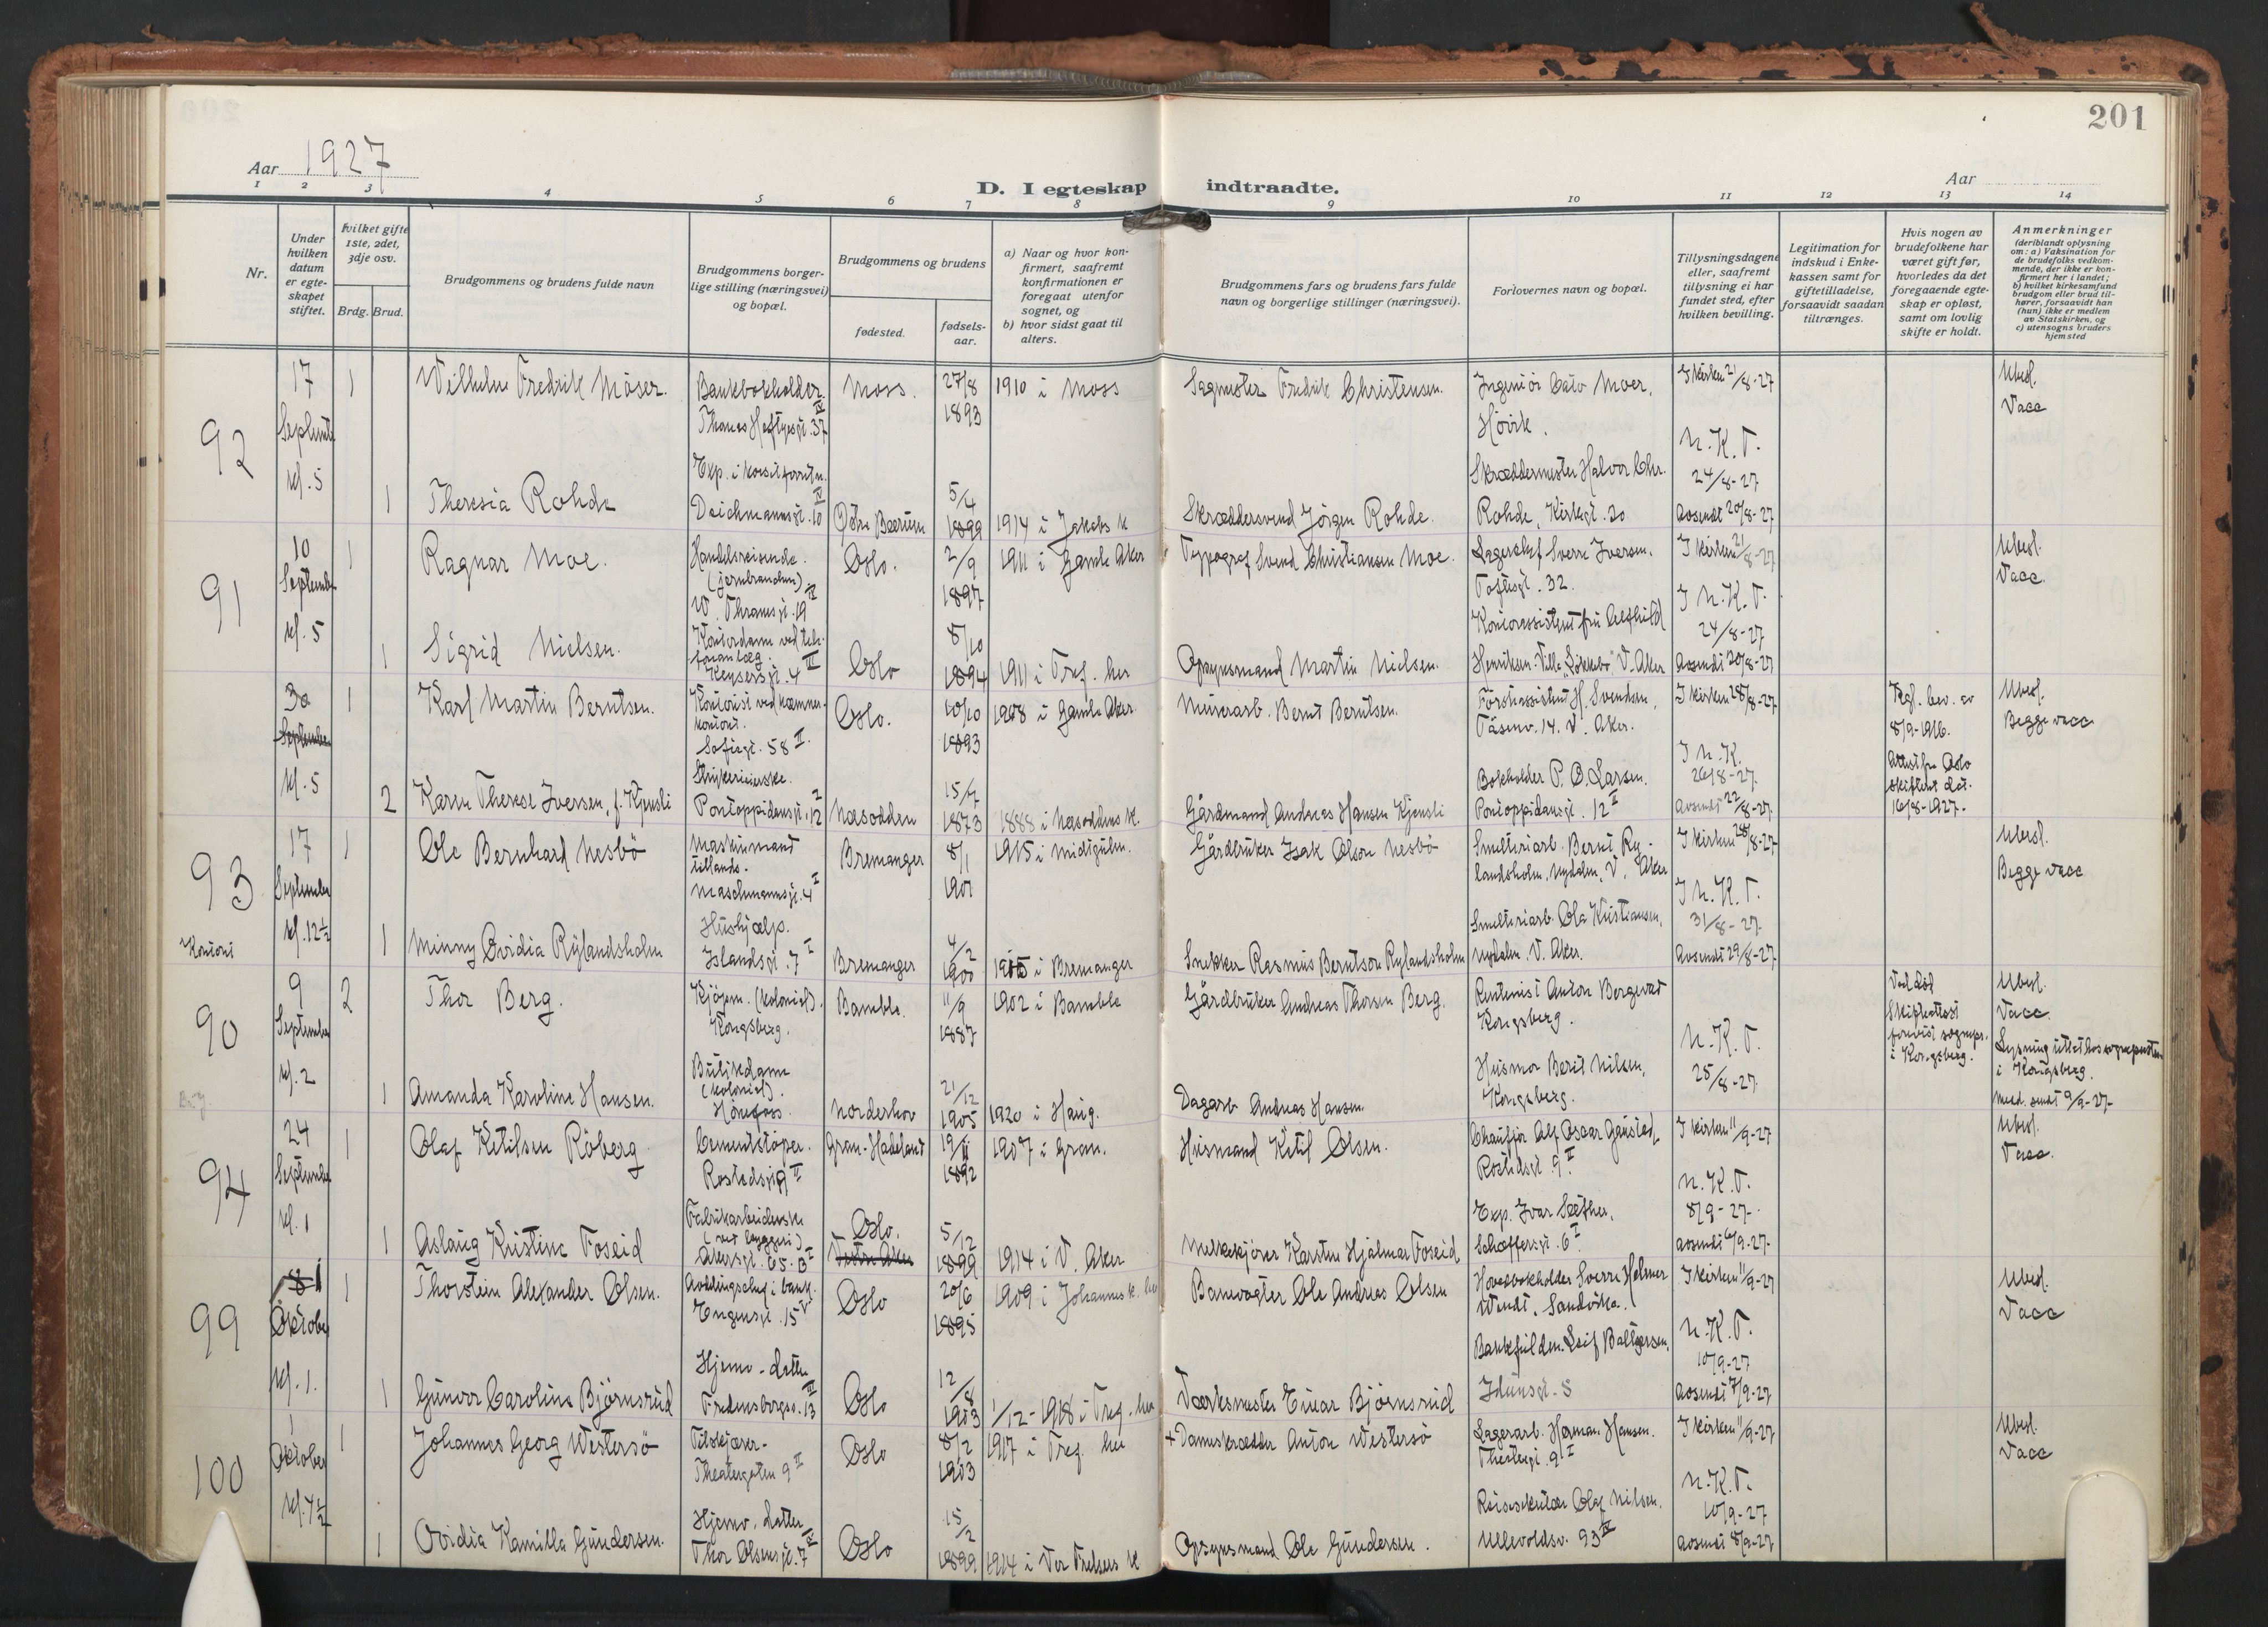 201
Aar 1927
D. I egteskap indtraadte.
Aar
1 2 3 4 5 6 7 8 9 10 11 12 13 14
Nr.
Under hvilken datum er egteskapet stiftet.
Hvilket gifte 1ste, 2det, 3dje osv.
Brdg. Brud.
Brudgommens og brudens fulde navn
Brudgommens borgerlige stilling (næringsvei) og bopæl.
Brudgommens og brudens
fødested.
fødselsaar.
a) Naar og hvor konfirmert, saafremt konfirmationen er foregaat utenfor sognet, og
b) hvor sidst gaat til alters.
Brudgommens fars og brudens fars fulde navn og borgerlige stillinger (næringsvei).
Forlovernes navn og bopæl.
Tillysningsdagene eller, saafremt tillysning ei har fundet sted, efter hvilken bevilling.
Legitimation for indskud i Enkekassen samt for giftetilladelse, forsaavidt saadan tiltrænges.
Hvis nogen av brudefolkene har været gift før, hvorledes da det foregaaende egteskap er opløst, samt om lovlig skifte er holdt.
Anmerkninger
(deriblandt oplysning om: a) Vaksination for de brudefolks vedkommende, der ikke er konfirmert her i landet; b) hvilket kirkesamfund brudgom eller brud tilhører, forsaavidt han (hun) ikke er medlem av Statskirken, og c) utensogns bruders hjemsted
92 17 Septembr kl. 5
1 Vilhelm Fredrik Möser. Bankbokholder Thomas Heftyesgt. 37 IV Moss. 27/8 1893 1910 i Moss Sagmester Fredrik Christensen. Ingeniör Cato Moer, Hövik. I kirken 21/8-27 Ubesl. Vacc
N.K.T. 24/8-27
1 Theresia Rohde Deichmannsgt. 10 IV Östre Bærum 5/4 1899 1914 i Jakobs k Skræddersvend Jörgen Rohde. Skræddermester Halvor Chr. Rohde, Kirkegt. 20 Avsendt 20/8-27
91 10 Septembr kl. 5
1 Ragnar Moe. Handelsreisende. (jernbranchen) W. Thranesgt. 19 Oslo. 2/9 1897 1911 i Gamle Aker Typograf Svend Christiansen Moe. Lagerchef Sverre Iversen. Toftesgt. 32. I kirken 21/8-27 Ubesl. Vacc.
I N.K.T. 24/8-27
1 Sigrid Nielsen. Kontordame ved telefonanlæg. Keysersgt. 4 III Oslo 8/10 1894 1911 i Tref. her Opsynsmand Martin Nielsen. Henriksen. Villa "Lökkebo" V. Aker Avsendt 20/8-27
30 September kl. 5
1 Karl Martin Berntsen. Kontorist ved kæmnerkontoret. Sofiegt. 58 II. Oslo. 10/10 1893 1908 i Gamle Aker Murerarb. Bernt Berntsen. Försteassistent H. Svendsen, Tåsenv. 14. V. Aker. I kirken 28/8-27 Ubesl. Begge vacc
I N.K. 26/8-27
2 Karen Therese Iversen, f. Kjensli Strykerieierske. Pontoppidansgt. 12 Næsodden 15/7 1873 1888 i Næsoddens k. Gårdmand Andreas Hansen Kjensli Bokholder P. O. Larsen. Pontoppidansgt. 12 I Avsendt 22/8-27 8/9-1916. Attest fra Oslo skifterett dat. 16/8-1927.
93 17 September kl. 12½ Kontort
1 Ole Bernhard Nesbö Maskinmand tillands. Maschmannsgt. 4 I Bremanger 8/1 1901 1915 i Midtgulen. Gårdbruker Isak Olson Nesbö Smelteriarb. Bernt Rylandsholm, Nydalen, V. Aker I kirken 28/8-27 Ubesl. Begge vacc
I N.K.T. 31/8-27
1 Minny Ovidia Rylandsholm Hushjælp. Islandsgt. 7 I Bremanger 4/2 1900 1915 i Bremanger Snekker Rasmus Berntson Rylandsholm Smelteriarb. Ola Kristiansen, Nydalen. V. Aker. Avsendt 29/8-27
90 9 September kl. 2
2 Thor Berg. Kjöpm. (kolonial). Kongsberg. Bamble. 11/9 1887 1902 i Bamble Gårdbruker Andreas Thorsen Berg. Rentenist Anton Bergevad Kongsberg. N.K.T. 25/8-27 Ved död Skifteattest forevist sognepr. i Kongsberg. Ubesl. Vacc. Lysning utlist hos sognepresten i Kongsberg.
1 Amanda Karoline Hansen. Butikdame (kolonial). Hönefoss. Norderhov 21/12 1905 1920 i Haug. Dagarb Andreas Hansen. Husmor Berit Nilsen, Kongsberg. Medd. sendt 9/9-27-
94 24 September kl. 1
1 Olaf Ketilsen Röberg Cementstöper. Rostedsgt 9 II Gran-Hadeland 19/11 1892 1907 i Gran. Husmand Ketil Olsen. Chauffør Alf Oscar Gaustad, Rostedsgt. 9 I I kirken 11/9-27 Ubesl. Vacc.
N.K.T. 8/9-27-
1 Aslaug Kristine Foseid Fabrikarbeiderske Akersgt. 65. B I Oslo. Vestre Aker 5/12 1899 1914 i V. Aker Melkekjörer Karsten Hjalmar Foseid Exp. Ivar Sæther, Schæffersgt. 6 I Avsendt 6/9-27-
99 1 Oktober kl. 1.
1 Thorstein Alexander Olsen. Avdelingschef i bank. Eugensgt. 15 V Oslo 20/6 1895 1909 i Johannes k. her Banevogter Ole Andreas Olsen Hovedbokholder Sverre Helmer Wendt, Sandvika. I kirken 11/9-27 Ubesl. Vacc
N.K.T. 10/9-27
1 Gunvor Caroline Björnsrud Hjemv. datter Fredensborgv. 13 III Oslo 12/8 1903 1/12-1918 i Tref. her Værksmester Einar Bjørnsrud Bankfuldm. Leif Baltzersen, Idunsgt. 5 Avsendt 7/9-27
100 1 Oktober kl. 4½
1 Johannes Georg Westersö Filskjærer- Theatergaten 9 II Oslo 8/2 1903 1917 i Tref. her + Dameskrædder Anton Westersö Lagerarb. Herman Hansen. Theatergt. 9 I I kirken 11/9-27 Ubesl. Vacc
N.K.T. 10/9-27
1 Ovidia Kamilla Gundersen. Hjemv. datter Thor Olsens gt. 7 IV Oslo 15/2 1899 1914 i Vor Frelsers k Opsynsmand Ole Gundersen. Reisesekretær Olaf Nilsen. Ullevoldsv. 93 IV Avsendt 8/9-27